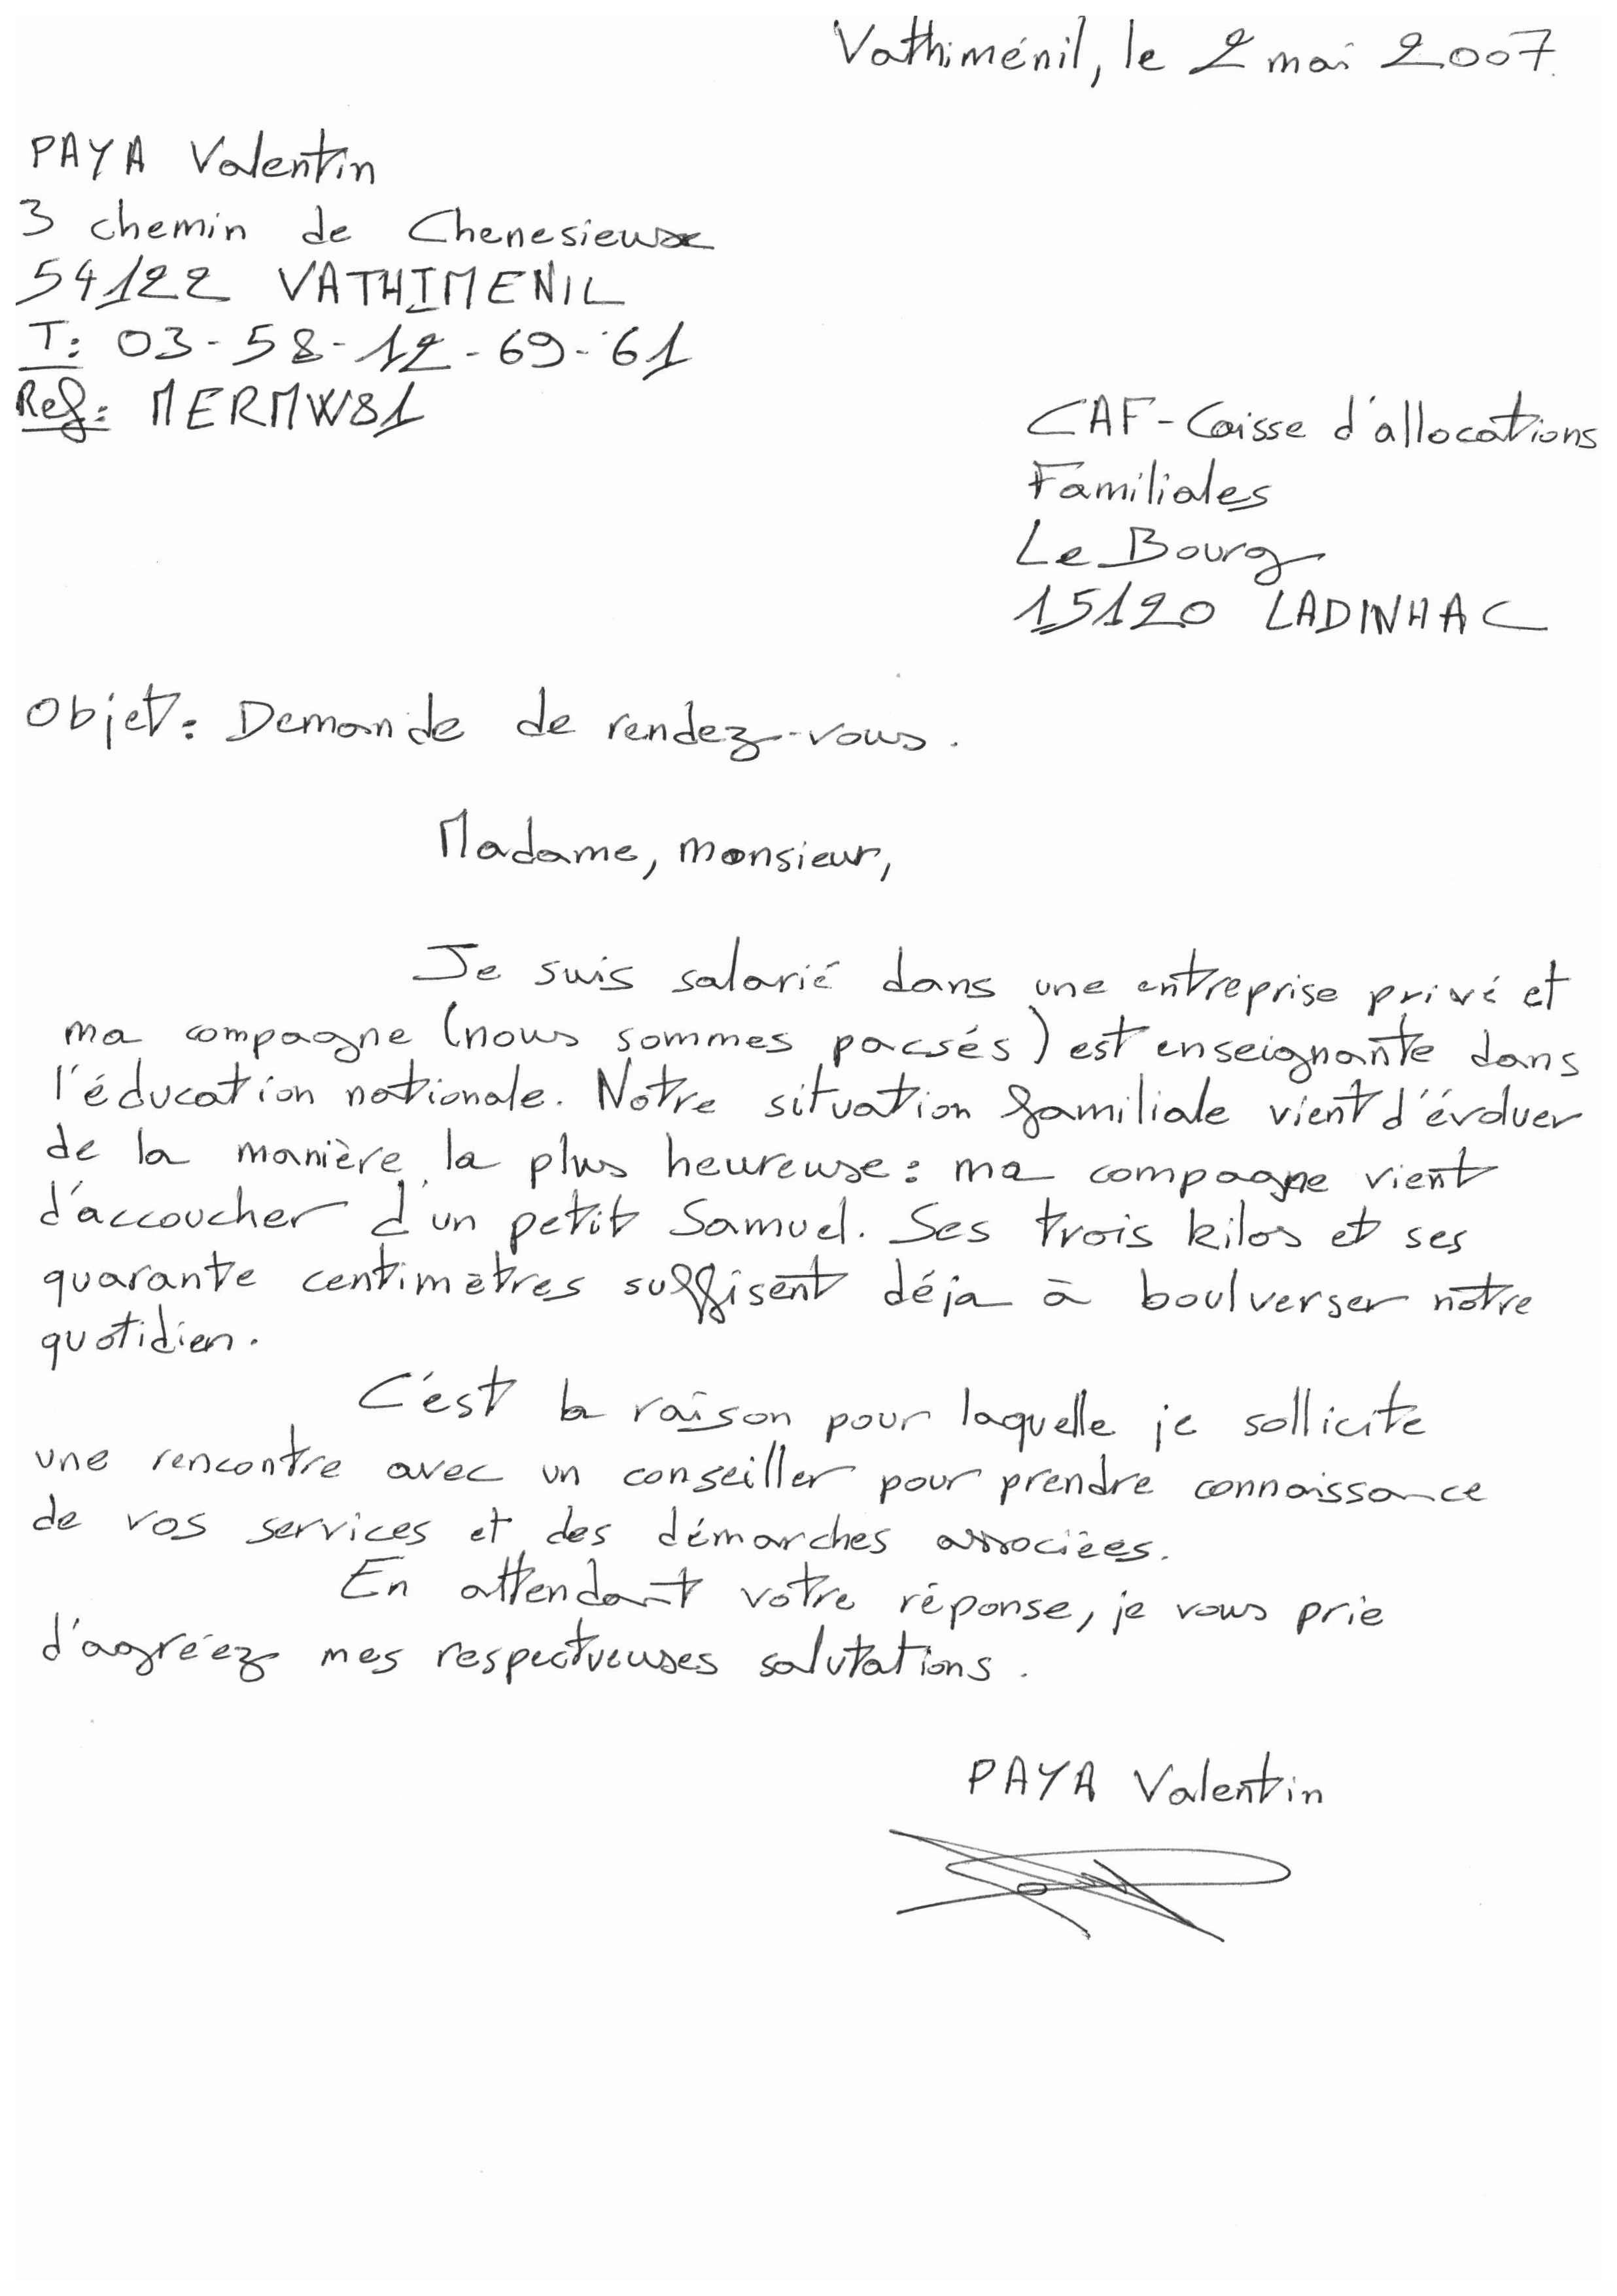 Vathiménil, le 2 mai 2007.
PAYA Valentin
3 chemin de Chenesieux
54122 VATHIMENIL
T: 03-58-12-69-61
Ref: MERMW81
CAF-Caisse d'allocations
Familiales
Le Bourg
15120 LADINHAC
Objet: Demande de rendez-vous.
Madame, monsieur,
Je suis salarié dans une entreprise privé et
ma compagne (nous sommes pacsés) est enseignante dans
l'éducation nationale. Notre situation familiale vient d'évoluer
de la manière la plus heureuse: ma compagne vient
d'accoucher d'un petit Samuel. Ses trois kilos et ses
quarante centimètres suffisent déja à boulverser notre
quotidien.
C'est la raison pour laquelle je sollicite
une rencontre avec un conseiller pour prendre connaissance
de vos services et des démarches associées.
En attendant votre réponse, je vous prie
d'agréez mes respectueuses salutations.
PAYA Valentin